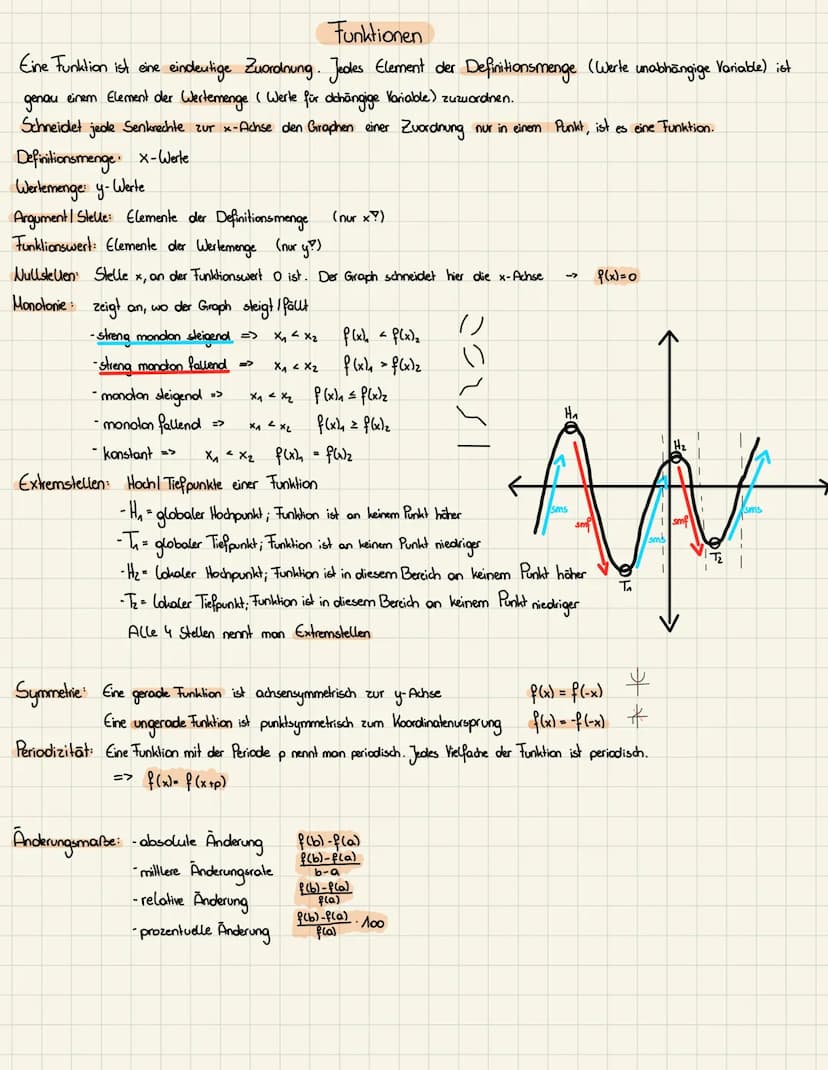 Funktionen
Eine Funktion ist eine eindeutige Zuordnung. Jedes Element der Definitionsmenge (Werte unabhängige Variable) ist
genau einem Element der Wertemenge (Werte für abhängige Variable) zuzuordnen.
Schneidet jede Senkrechte zur x-Achse den Graphen einer Zuordnung nur in einem Punkt, ist es eine Funktion.
Definitionsmenge: x-Werte
Wertemenge: y-Werte
Argument/Stelle: Elemente der Definitionsmenge (nur x?)
Funktionswert: Elemente der Wertemenge (nur y?)
Nullstellen: Stelle x, an der Funktionswert 0 ist. Der Graph schneidet hier die x-Achse → f(x)=0
Monotonie: zeigt an, wo der Graph steigt/fällt
- streng monoton steigend => x₁ < x₂ f(x)₁ < f(x)₂
- streng monoton fallend => x₁ < x₂ f(x)₁ > f(x)₂
- monoton steigend => x₁ < x₂ f(x)₁ ≤ f(x)₂
- monoton fallend => x₁ < x₂ f(x)₁ ≥ f(x)₂
- konstant => x₁ < x₂ f(x)₁ = f(x)₂
H₁
H₂
sms
smf
sms
smf
sms
T₁
T₂
Extremstellen: Hoch/Tiefpunkte einer Funktion
- H₁ = globaler Hochpunkt; Funktion ist an keinem Punkt höher
- T₁ = globaler Tiefpunkt; Funktion ist an keinem Punkt niedriger
- H₂ = lokaler Hochpunkt; Funktion ist in diesem Bereich an keinem Punkt höher
- T₂ = lokaler Tiefpunkt; Funktion ist in diesem Bereich an keinem Punkt niedriger
Alle 4 Stellen nennt man Extremstellen
Symmetrie: Eine gerade Funktion ist achsensymmetrisch zur y-Achse f(x) = f(-x)
Eine ungerade Funktion ist punktsymmetrisch zum Koordinatenursprung f(x) = -f(-x)
Periodizität: Eine Funktion mit der Periode p nennt man periodisch. Jedes Vielfache der Funktion ist periodisch.
=> f(x) = f(x+p)
Änderungsmaße: - absolute Änderung f(b)-f(a)
- mittlere Änderungsrate (f(b)-f(a))/(b-a)
- relative Änderung (f(b)-f(a))/f(a)
- prozentuelle Änderung (f(b)-f(a))/f(a) · 100